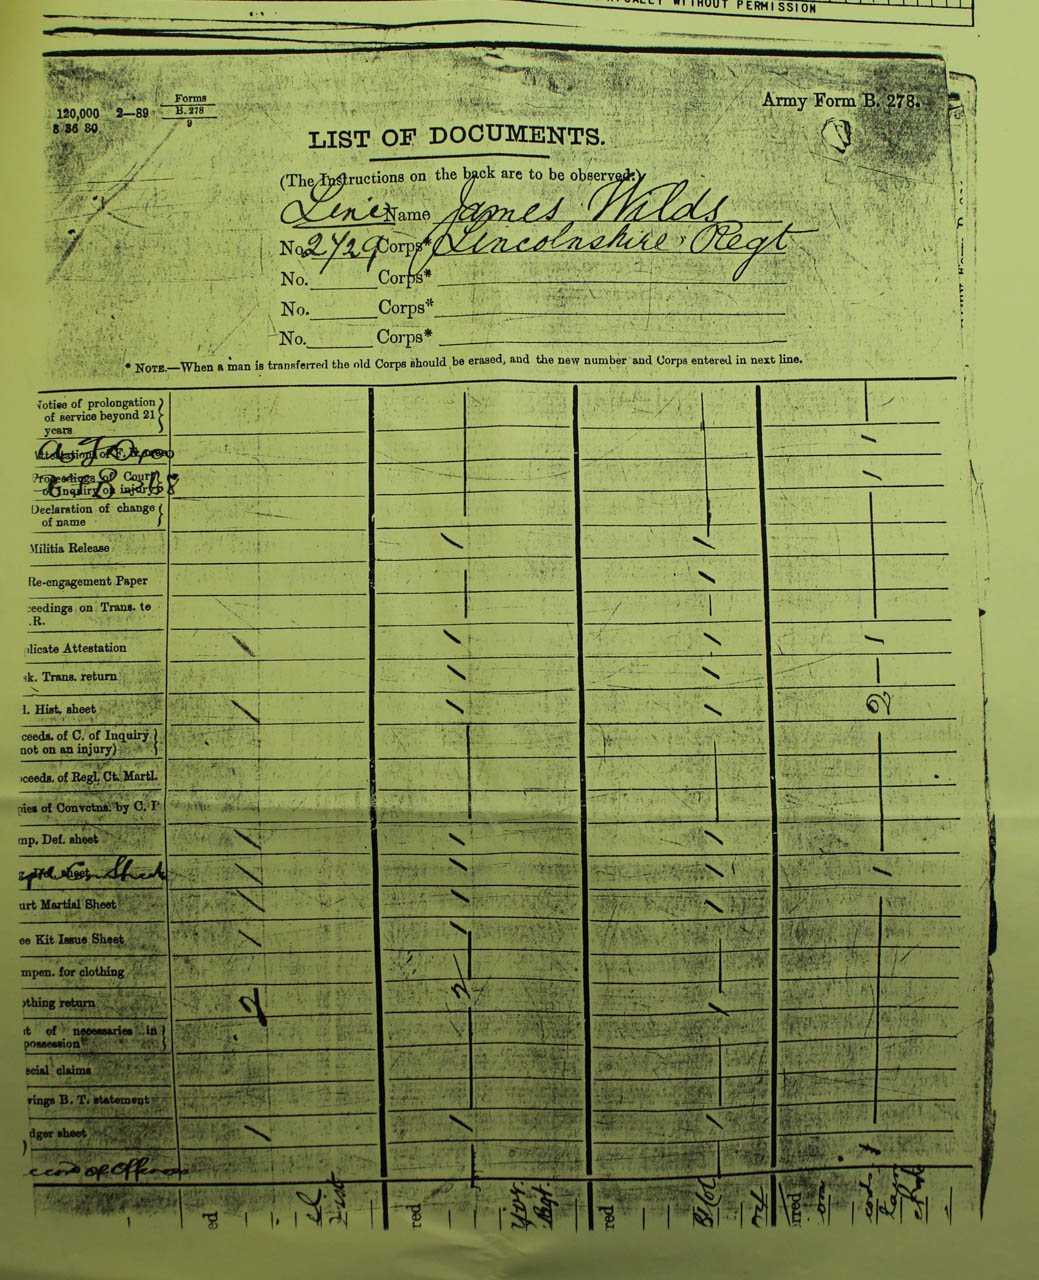 WITHOUT PERMISSION
Forms
120,000 2—89 B. 278
8 36 80 9
Army Form B. 278.
LIST OF DOCUMENTS.
(The Instructions on the back are to be observed.)
Line Name James Wilds
No. 2429 Corps* Lincolnshire Regt
No. Corps*
No. Corps*
No. Corps*
* NOTE.—When a man is transferred the old Corps should be erased, and the new number and Corps entered in next line.
Notice of prolongation
of service beyond 21
years
Attestation of
Proceedings of Court
of Inquiry on injury
Declaration of change
of name
Militia Release
Re-engagement Paper
eedings on Trans. to
.R.
licate Attestation
k. Trans. return
l. Hist. sheet 2
ceeds. of C. of Inquiry
not on an injury)
ceeds. of Regl. Ct. Martl.
pies of Convctns. by C. P
mp. Def. sheet
sheet Sheet
urt Martial Sheet
ee Kit Issue Sheet
mpen. for clothing
thing return 2 2
t of necessaries in
possession
ecial claims
vings B. T. statement
dger sheet
of Offences
ed red red rred